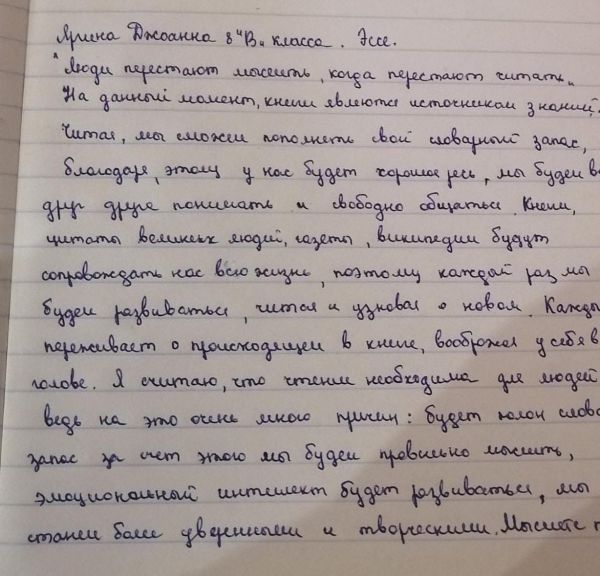 Ярина Джоанна 8 "В" класса. Эссе.
"Люди перестают мыслить, когда перестают читать"
На данный момент, книги являются источником знаний.
Читая, мы сможем пополнеть свой словарный запас,
благодаря, этому у нас будет хорошая речь, мы будем
друг друга понимать и свободно общаться. Книги,
цитаты великих людей, газеты, википедии будут
сопровождать нас всю жизнь, поэтому каждый раз мы
будем развиваться, читая и узновая о новом. Кажды
переживает о происходящем в книге, воображая у себя в
голове. Я считаю, что чтение необходима для людей
ведь на это очень много причин: будет полон слова
запас за счет этого мы будем провильно мыслить,
эмоциональный интеллект будет развиваться, мы
станем более уверенными и творческими. Мыслите